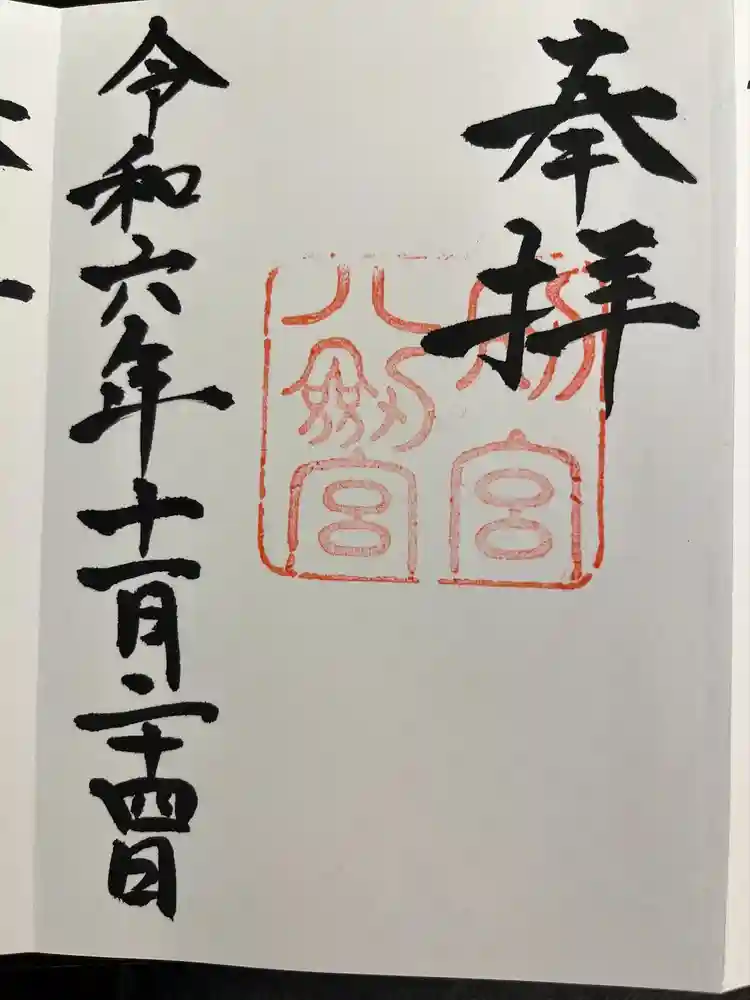 奉拝
八剱宮
令和六年十一月二十四日